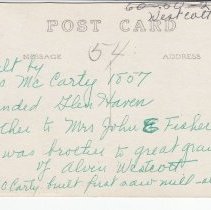 66-09-2
Westcott
POST CARD
54
MESSAGE ADDRESS
ilt by
s McCarty 1857
nded Glen Haven
ther to Mrs John E Fisher
was brother to great gra
of Alvin Westcott
cCarty built first saw mill